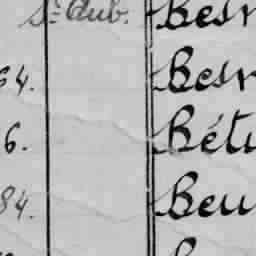 St Aub. Besn
64. Besn
6. Bétu
84. Beu